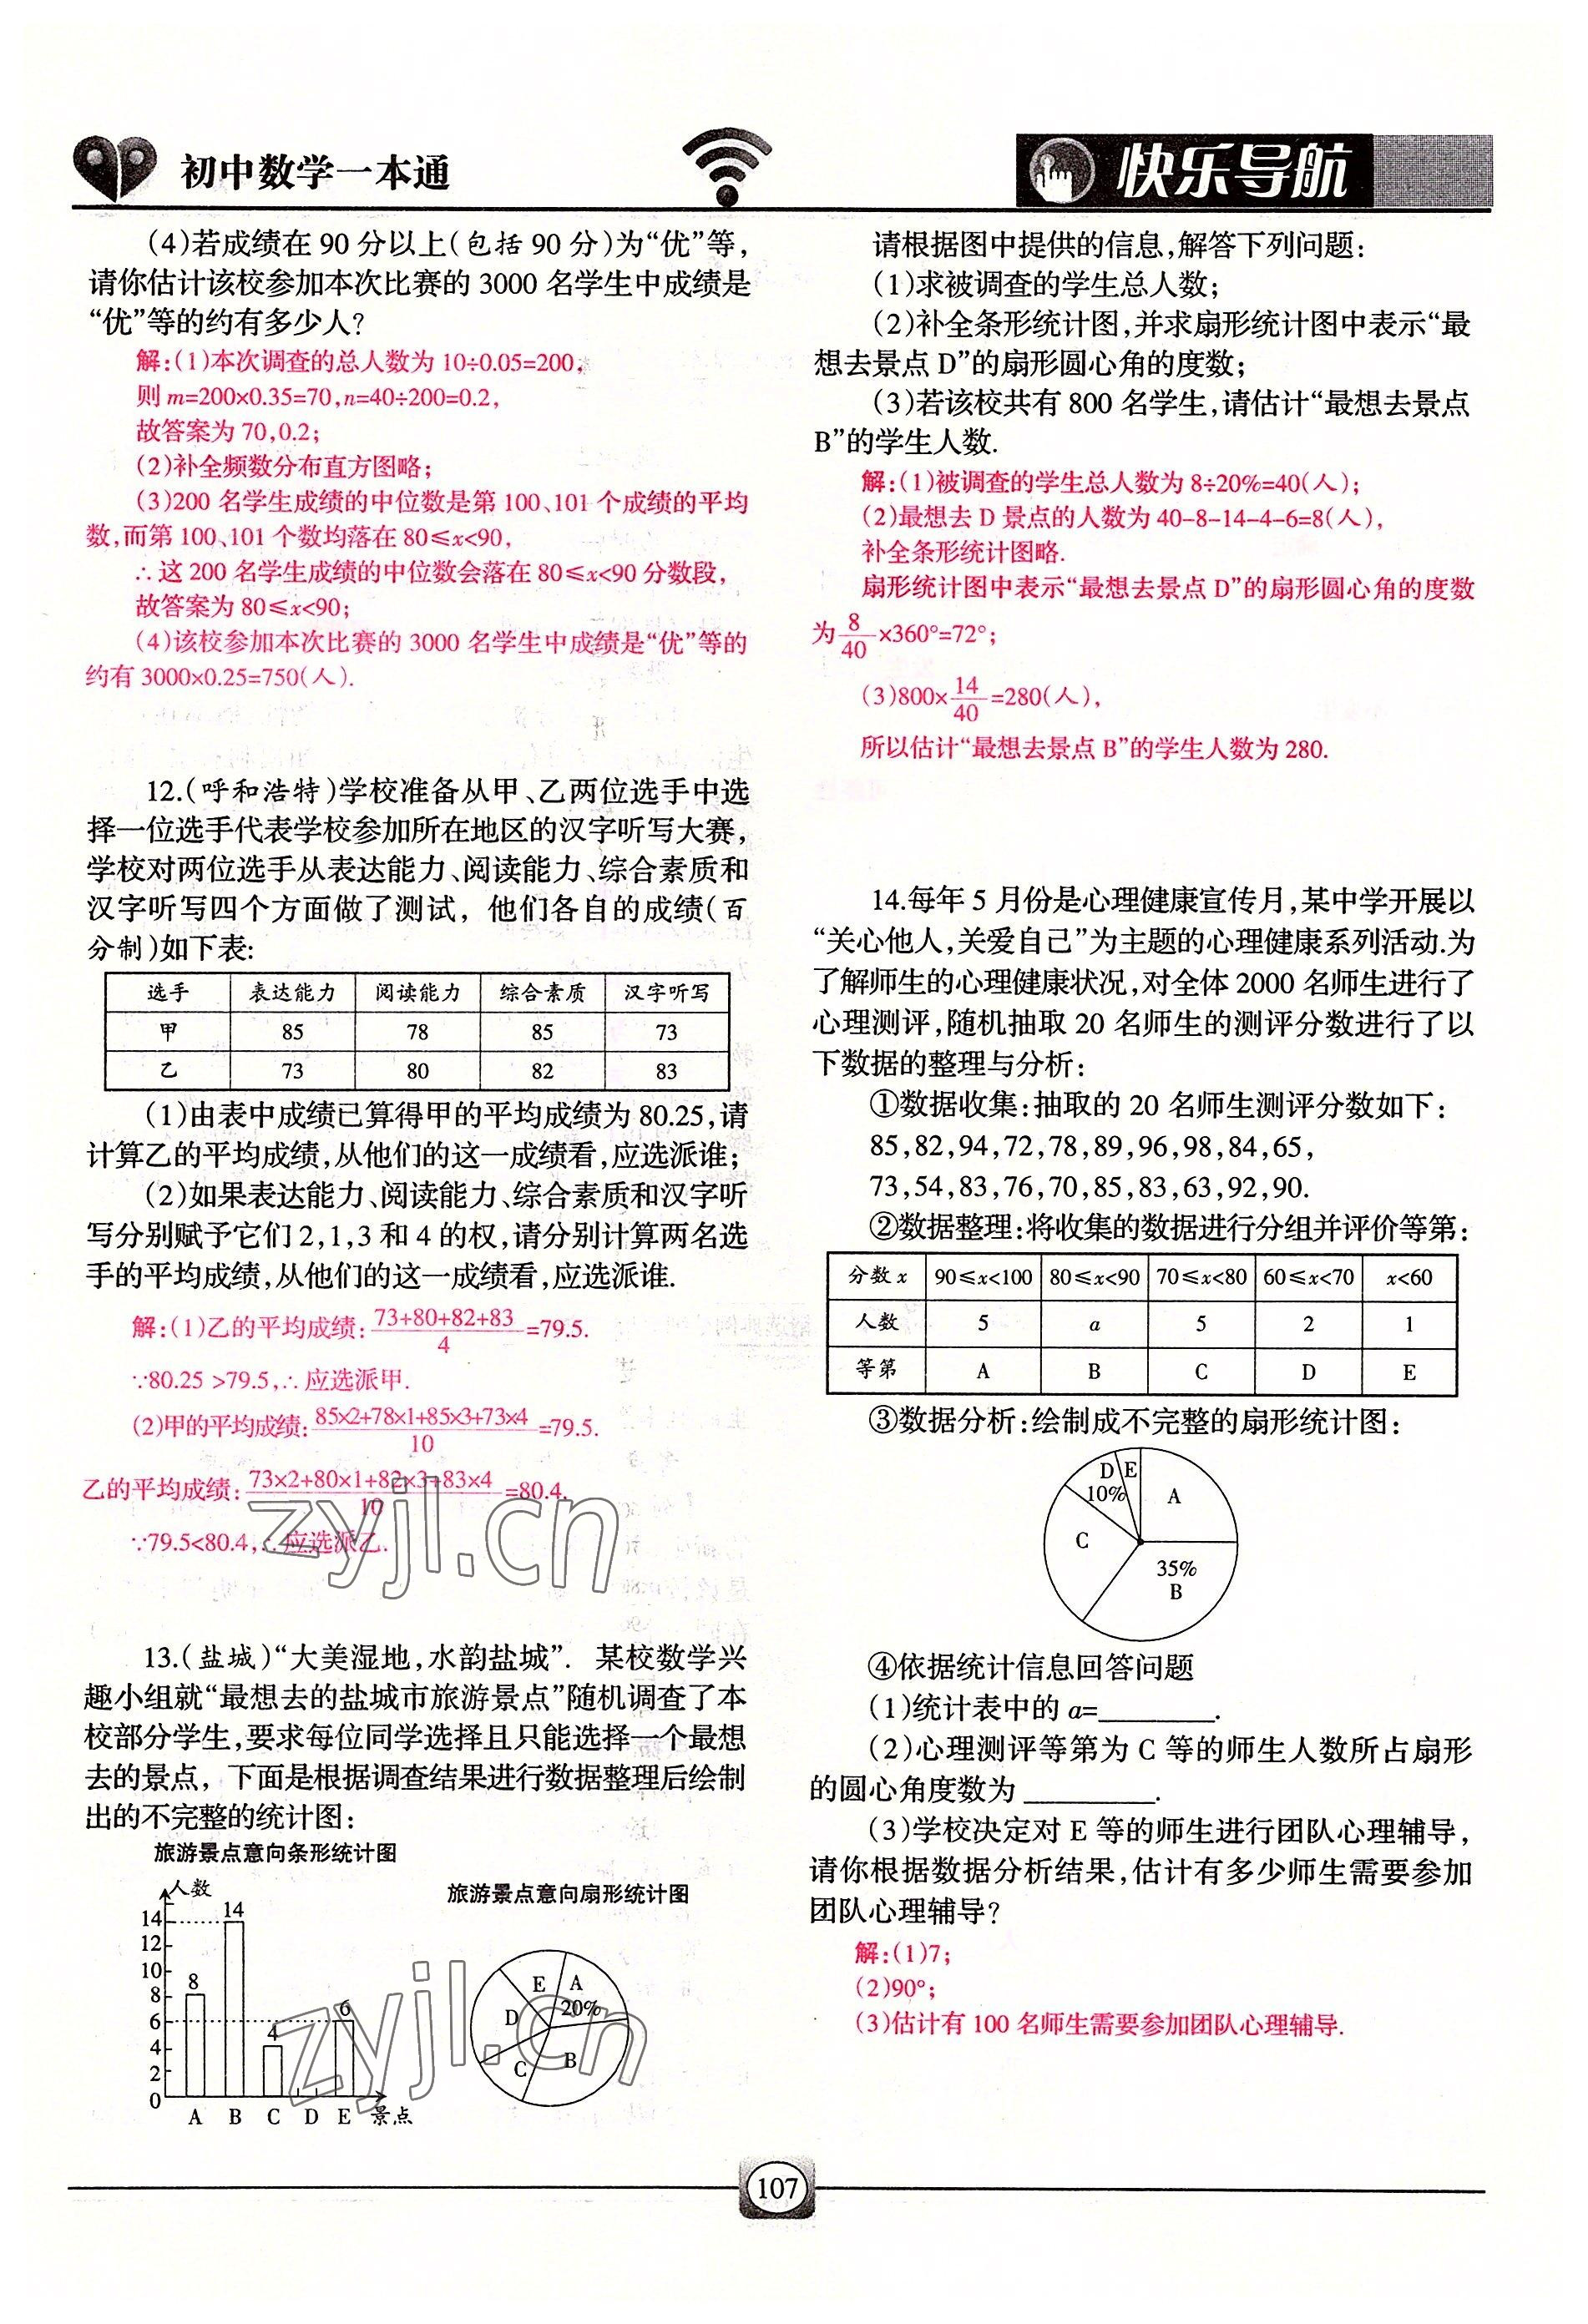 初中数学一本通
快乐导航
(4)若成绩在 90 分以上(包括 90 分)为“优”等,
请你估计该校参加本次比赛的 3000 名学生中成绩是
“优”等的约有多少人?
解:(1)本次调查的总人数为 10÷0.05=200,
则 m=200×0.35=70,n=40÷200=0.2,
故答案为 70,0.2;
(2)补全频数分布直方图略;
(3)200 名学生成绩的中位数是第 100、101 个成绩的平均
数,而第 100、101 个数均落在 80≤x<90,
∴这 200 名学生成绩的中位数会落在 80≤x<90 分数段,
故答案为 80≤x<90;
(4)该校参加本次比赛的 3000 名学生中成绩是“优”等的
约有 3000×0.25=750(人).
12.(呼和浩特)学校准备从甲、乙两位选手中选
择一位选手代表学校参加所在地区的汉字听写大赛,
学校对两位选手从表达能力、阅读能力、综合素质和
汉字听写四个方面做了测试, 他们各自的成绩(百
分制)如下表:
选手 表达能力 阅读能力 综合素质 汉字听写
甲 85 78 85 73
乙 73 80 82 83
(1)由表中成绩已算得甲的平均成绩为 80.25,请
计算乙的平均成绩,从他们的这一成绩看,应选派谁;
(2)如果表达能力、阅读能力、综合素质和汉字听
写分别赋予它们 2,1,3 和 4 的权,请分别计算两名选
手的平均成绩,从他们的这一成绩看,应选派谁.
解:(1)乙的平均成绩:73+80+82+83/4=79.5.
∵80.25 >79.5,∴应选派甲.
(2)甲的平均成绩:85×2+78×1+85×3+73×4/10=79.5.
乙的平均成绩:73×2+80×1+82×3+83×4/10=80.4.
∵79.5<80.4,∴应选派乙.
zyjl.cn
13.(盐城)“大美湿地,水韵盐城”. 某校数学兴
趣小组就“最想去的盐城市旅游景点”随机调查了本
校部分学生,要求每位同学选择且只能选择一个最想
去的景点, 下面是根据调查结果进行数据整理后绘制
出的不完整的统计图:
旅游景点意向条形统计图
人数
14
12
10
8
6
4
2
0
8
14
4
6
A B C D E 景点
旅游景点意向扇形统计图
E A
20%
D
C B
zyjl.cn
请根据图中提供的信息,解答下列问题:
(1)求被调查的学生总人数;
(2)补全条形统计图,并求扇形统计图中表示“最
想去景点 D”的扇形圆心角的度数;
(3)若该校共有 800 名学生,请估计“最想去景点
B”的学生人数.
解:(1)被调查的学生总人数为 8÷20%=40(人);
(2)最想去 D 景点的人数为 40-8-14-4-6=8(人),
补全条形统计图略.
扇形统计图中表示“最想去景点 D”的扇形圆心角的度数
为8/40×360°=72°;
(3)800×14/40=280(人),
所以估计“最想去景点 B”的学生人数为 280.
14.每年 5 月份是心理健康宣传月,某中学开展以
“关心他人,关爱自己”为主题的心理健康系列活动.为
了解师生的心理健康状况,对全体 2000 名师生进行了
心理测评,随机抽取 20 名师生的测评分数进行了以
下数据的整理与分析:
①数据收集:抽取的 20 名师生测评分数如下:
85,82,94,72,78,89,96,98,84,65,
73,54,83,76,70,85,83,63,92,90.
②数据整理:将收集的数据进行分组并评价等第:
分数 x 90≤x<100 80≤x<90 70≤x<80 60≤x<70 x<60
人数 5 a 5 2 1
等第 A B C D E
③数据分析:绘制成不完整的扇形统计图:
D E
10% A
C
35%
B
④依据统计信息回答问题
(1)统计表中的 a=________.
(2)心理测评等第为 C 等的师生人数所占扇形
的圆心角度数为 _________.
(3)学校决定对 E 等的师生进行团队心理辅导,
请你根据数据分析结果,估计有多少师生需要参加
团队心理辅导?
解:(1)7;
(2)90°;
(3)估计有 100 名师生需要参加团队心理辅导.
107